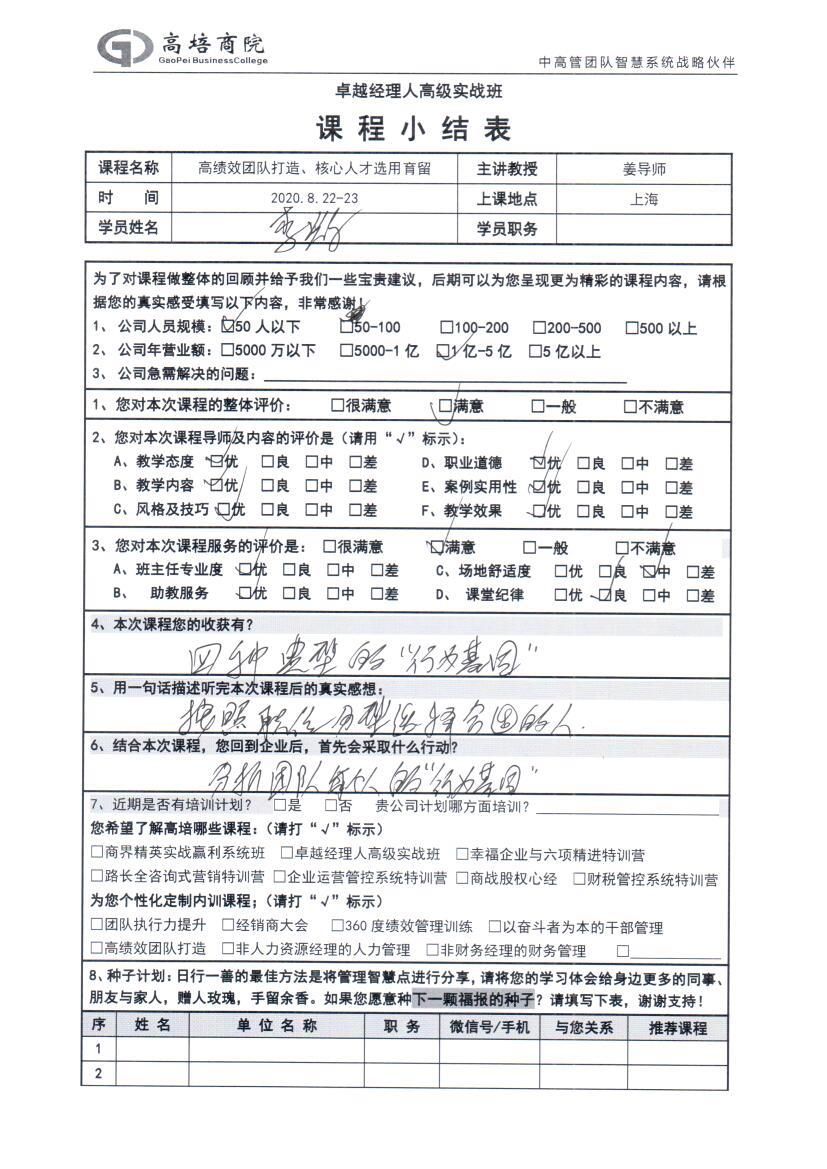 高培商院
GaoPei BusinessCollege
中高管团队智慧系统战略伙伴
卓越经理人高级实战班
课程小结表
课程名称 高绩效团队打造、核心人才选用育留 主讲教授 姜导师
时 间 2020.8.22-23 上课地点 上海
学员姓名 李 学员职务
为了对课程做整体的回顾并给予我们一些宝贵建议，后期可以为您呈现更为精彩的课程内容，请根
据您的真实感受填写以下内容，非常感谢！
1、公司人员规模：☑50人以下 □50-100 □100-200 □200-500 □500以上
2、公司年营业额：□5000万以下 □5000-1亿 ☑1亿-5亿 □5亿以上
3、公司急需解决的问题：
1、您对本次课程的整体评价： □很满意 ☑满意 □一般 □不满意
2、您对本次课程导师及内容的评价是（请用“√”标示）：
A、教学态度 ☑优 □良 □中 □差 D、职业道德 ☑优 □良 □中 □差
B、教学内容 ☑优 □良 □中 □差 E、案例实用性 ☑优 □良 □中 □差
C、风格及技巧 ☑优 □良 □中 □差 F、教学效果 ☑优 □良 □中 □差
3、您对本次课程服务的评价是： □很满意 ☑满意 □一般 □不满意
A、班主任专业度 ☑优 □良 □中 □差 C、场地舒适度 □优 □良 ☑中 □差
B、 助教服务 ☑优 □良 □中 □差 D、 课堂纪律 □优 ☑良 □中 □差
4、本次课程您的收获有？
四种典型的“行为基因”
5、用一句话描述听完本次课程后的真实感想：
按照职位分型选择合适的人.
6、结合本次课程，您回到企业后，首先会采取什么行动？
分析团队每个人的“行为基因”
7、近期是否有培训计划？ □是 □否 贵公司计划哪方面培训？
您希望了解高培哪些课程：（请打“√”标示）
□商界精英实战赢利系统班 □卓越经理人高级实战班 □幸福企业与六项精进特训营
□路长全咨询式营销特训营 □企业运营管控系统特训营 □商战股权心经 □财税管控系统特训营
为您个性化定制内训课程；（请打“√”标示）
□团队执行力提升 □经销商大会 □360度绩效管理训练 □以奋斗者为本的干部管理
□高绩效团队打造 □非人力资源经理的人力管理 □非财务经理的财务管理 □
8、种子计划：日行一善的最佳方法是将管理智慧点进行分享，请将您的学习体会给身边更多的同事、
朋友与家人，赠人玫瑰，手留余香。如果您愿意种下一颗福报的种子？请填写下表，谢谢支持！
序 姓名 单位名称 职务 微信号/手机 与您关系 推荐课程
1
2